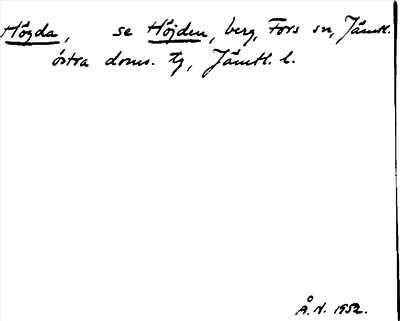 Högda, se Höjden, berg, Fors sn, Jämtl.
östra doms. tg, Jämtl. l.
Å.N. 1952.